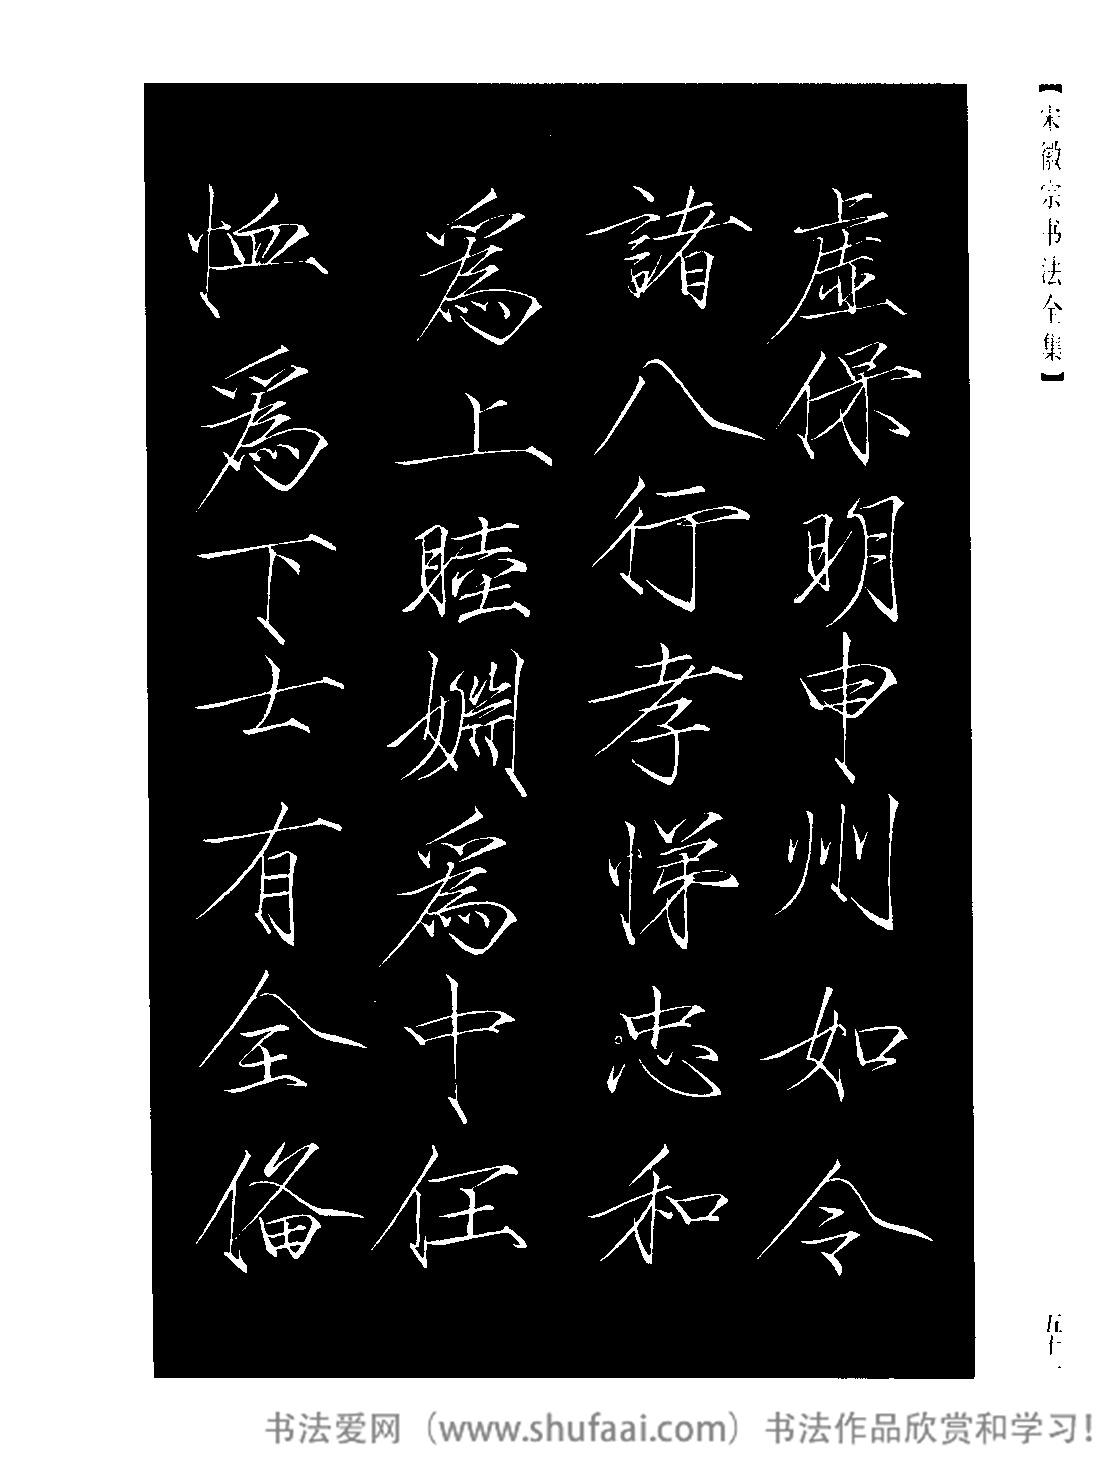 【宋徽宗书法全集】
虛保明申州如令
諸八行孝悌忠和
爲上睦婣爲中任
恤爲下士有全偹
五十一
书法爱网（www.shufaai.com）书法作品欣赏和学习！